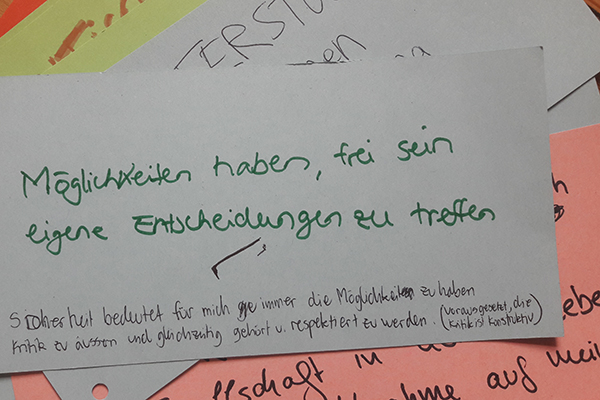 ERSTÜ
Möglichkeiten haben, frei sein
eigene Entscheidungen zu treffen
Sicherheit bedeutet für mich immer die Möglichkeiten zu haben
Kritik zu äussen und gleichzeitig gehört u. respektiert zu werden. (vorausgesetzt, die
Kritik ist konstruktiv)
ebe
llschaft in
ahme auf mein